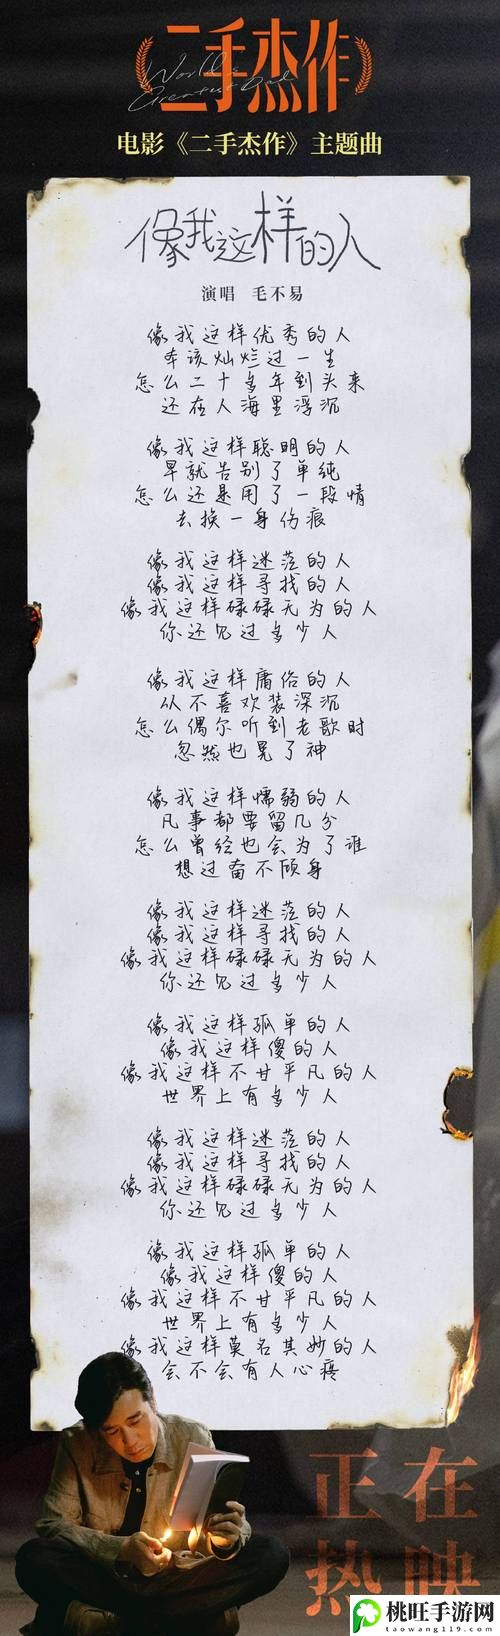 二手杰作
World's
Greatest Dad
电影《二手杰作》主题曲
像我这样的人
演唱 毛不易
像我这样优秀的人
本该灿烂过一生
怎么二十多年到头来
还在人海里浮沉
像我这样聪明的人
早就告别了单纯
怎么还是用了一段情
去换一身伤痕
像我这样迷茫的人
像我这样寻找的人
像我这样碌碌无为的人
你还见过多少人
像我这样庸俗的人
从不喜欢装深沉
怎么偶尔听到老歌时
忽然也晃了神
像我这样懦弱的人
凡事都要留几分
怎么曾经也会为了谁
想过奋不顾身
像我这样迷茫的人
像我这样寻找的人
像我这样碌碌无为的人
你还见过多少人
像我这样孤单的人
像我这样傻的人
像我这样不甘平凡的人
世界上有多少人
像我这样迷茫的人
像我这样寻找的人
像我这样碌碌无为的人
你还见过多少人
像我这样孤单的人
像我这样傻的人
像我这样不甘平凡的人
世界上有多少人
像我这样莫名其妙的人
会不会有人心疼
正在
热映
桃旺手游网
taowang119.com